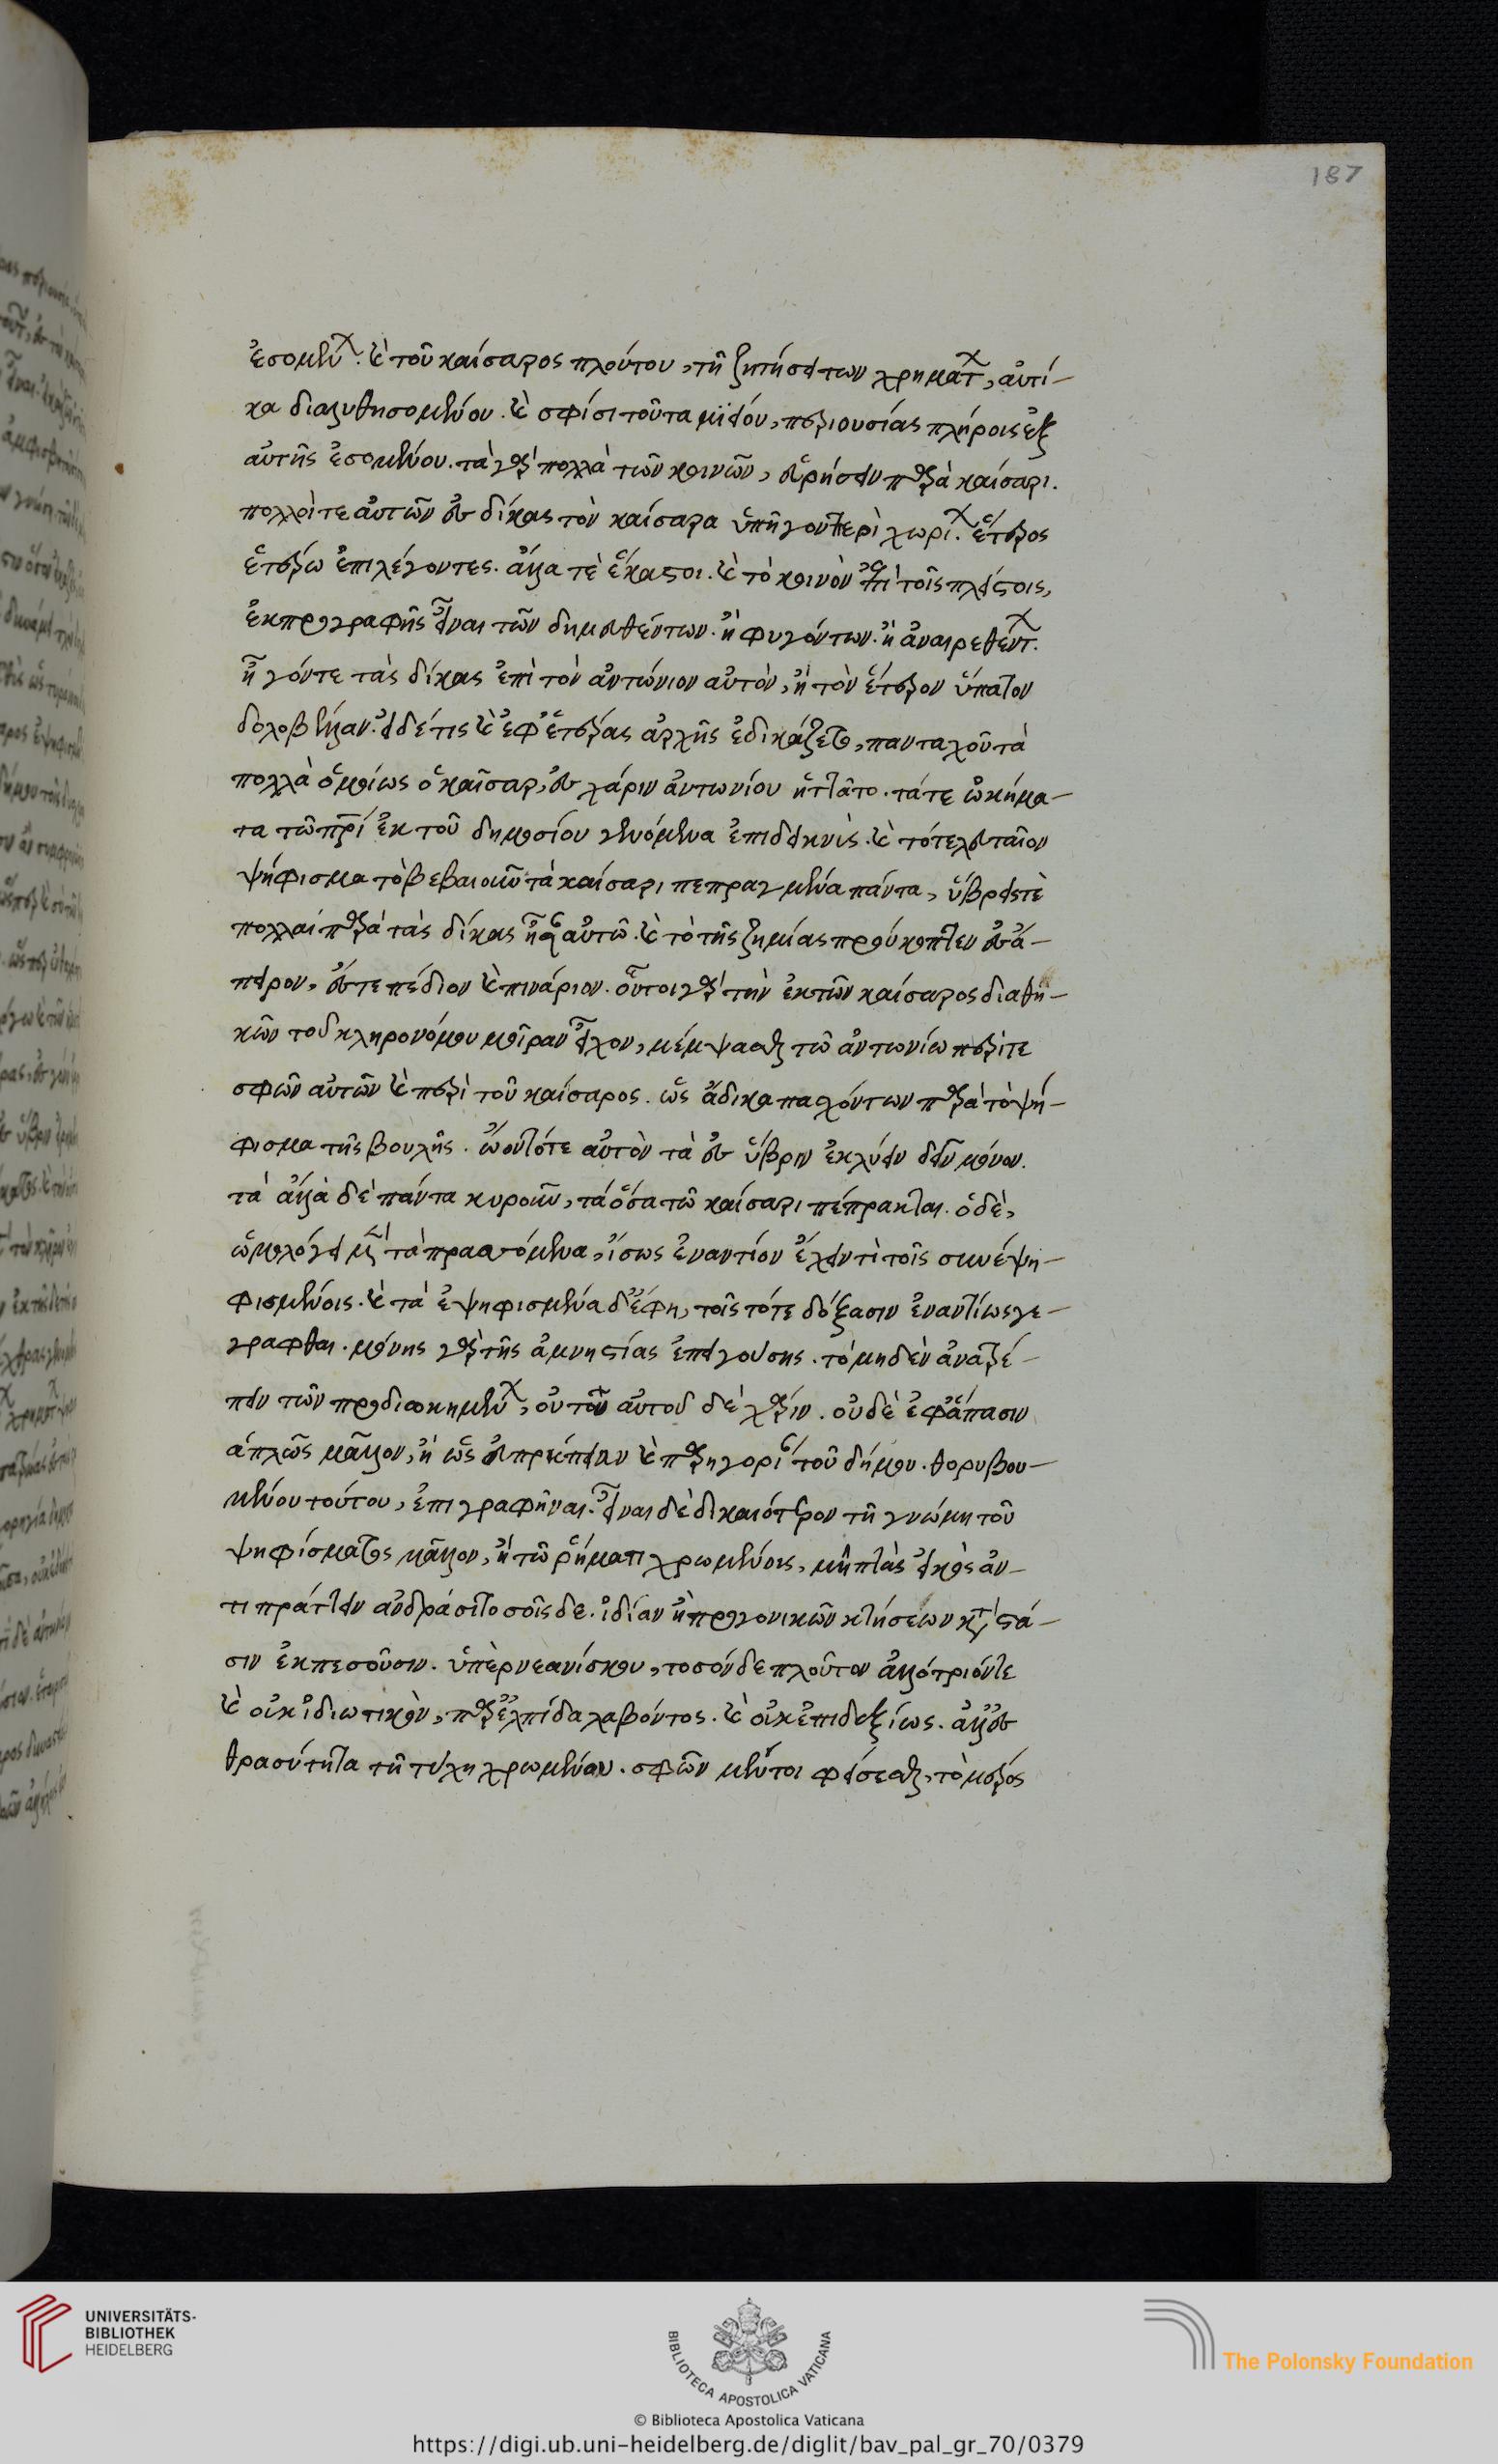 187
ἐσομένων. καὶ τοῦ καίσαρος πλούτου, τῇ ζητήσει των χρημάτων, αὐτί-
κα διαλυθησομένου. καὶ σφίσι τοῦ ταμιείου, περιουσίας πλήροις ἐξ
αὐτῆς ἐσομένου. τὰ γὰρ πολλὰ τῶν κοινῶν, εὑρήσειν παρὰ καίσαρι.
πολλοί τε αὐτῶν ἐς δίκας τὸν καίσαρα ὑπῆγον περὶ χωρίων. ἕτερος
ἑτέρω ἐπιλέγοντες. ἄλλα τὲ ἕκαστοι. καὶ τὸ κοινὸν ἐπὶ τοῖς πλείστοις,
ἐκ προγραφῆς εἶναι τῶν δημευθέντων. ἢ φυγόντων. ἢ ἀναιρεθέντων.
ἦγόν τε τὰς δίκας ἐπὶ τὸν ἀντώνιον αὐτὸν, ἢ τὸν ἕτερον ὕπατον
δολοβέλλαν. εἰ δέ τις καὶ ἐφ' ἑτέρας ἀρχῆς ἐδικάζετο, πανταχοῦ τὰ
πολλὰ ὁμοίως ὁ καῖσαρ, ἐς χάριν ἀντωνίου ἡττᾶτο. τά τε ὠνήμα-
τα τῶ πατρὶ ἐκ τοῦ δημοσίου γενόμενα ἐπιδεικνὺς. καὶ τό τελευταῖον
ψήφισμα τὸ βεβαιοῦν τὰ καίσαρι πεπραγμένα πάντα, ὕβρεις τὲ
πολλαὶ παρὰ τὰς δίκας ἦσαν αὐτῶ. καὶ τὸ τῆς ζημίας προύκοπτεν ἐς ἄ-
πειρον, ἔς τε πέδιον καὶ πινάριον. οὗτοι γὰρ τὴν ἐκ τῶν καίσαρος διαθη-
κῶν τοῦ κληρονόμου μοῖραν εἶχον, μέμψασθαι τῶ ἀντωνίω περί τε
σφῶν αὐτῶν καὶ περὶ τοῦ καίσαρος. ὡς ἄδικα πασχόντων παρὰ τὸ ψή-
φισμα τῆς βουλῆς. ᾤοντό τε αὐτὸν τὰ ἐς ὕβριν ἐκλύειν δεῖν μόνον.
τὰ ἄλλα δὲ πάντα κυροῦν, τὰ ὅσα τῶ καίσαρι πέπρακται. ὁ δὲ,
ὡμολόγει μὲν τὰ πρασσόμενα, ἴσως ἐναντίον ἔχειν τὶ τοῖς συνέψη-
φισμένοις. καὶ τὰ ἐψηφισμένα δ' ἔφη, τοῖς τότε δόξασιν ἐναντίως γε-
γραφθαι. μόνης γὰρ τῆς ἀμνηστίας ἐπειγούσης. τό μηδὲν ἀνατρέ-
πειν τῶν προδιωκημένων, οὐ τοῦ αὐτοῦ δὲ χάριν. οὐδὲ ἐφ' ἅπασιν
ἁπλῶς μᾶλλον, ἢ ὡς εὐπρέπειαν καὶ παρηγορίαν τοῦ δήμου. θορυβου-
μένου τούτου, ἐπιγραφῆναι. εἶναι δὲ δικαιότερον τῇ γνώμῃ τοῦ
ψηφίσματος μᾶλλον, ἢ τῶ ῥήματι χρωμένοις, μὴ παρὰ τὸ εἰκὸς ἀν-
τιπράττειν ἀνδράσι τοσοῖσδε. ἰδίαν ἢ προγονικῶν κτήσεων κατὰ στά-
σιν ἐκπεσοῦσιν. ὑπὲρ νεανίσκου, τοσόνδε πλοῦτον ἀλλότριόν τε
καὶ οὐκ ἰδιωτικὸν, παρ' ἐλπίδα λαβόντος. καὶ οὐκ ἐπιδεξίως. ἀλλ' ἐς
θρασύτητα τῇ τύχῃ χρωμένου. σφῶν μέντοι φείσεσθαι, τὸ μέρος
UNIVERSITÄTS-
BIBLIOTHEK
HEIDELBERG
BIBLIOTECA APOSTOLICA VATICANA
The Polonsky Foundation
© Biblioteca Apostolica Vaticana
https://digi.ub.uni-heidelberg.de/diglit/bav_pal_gr_70/0379